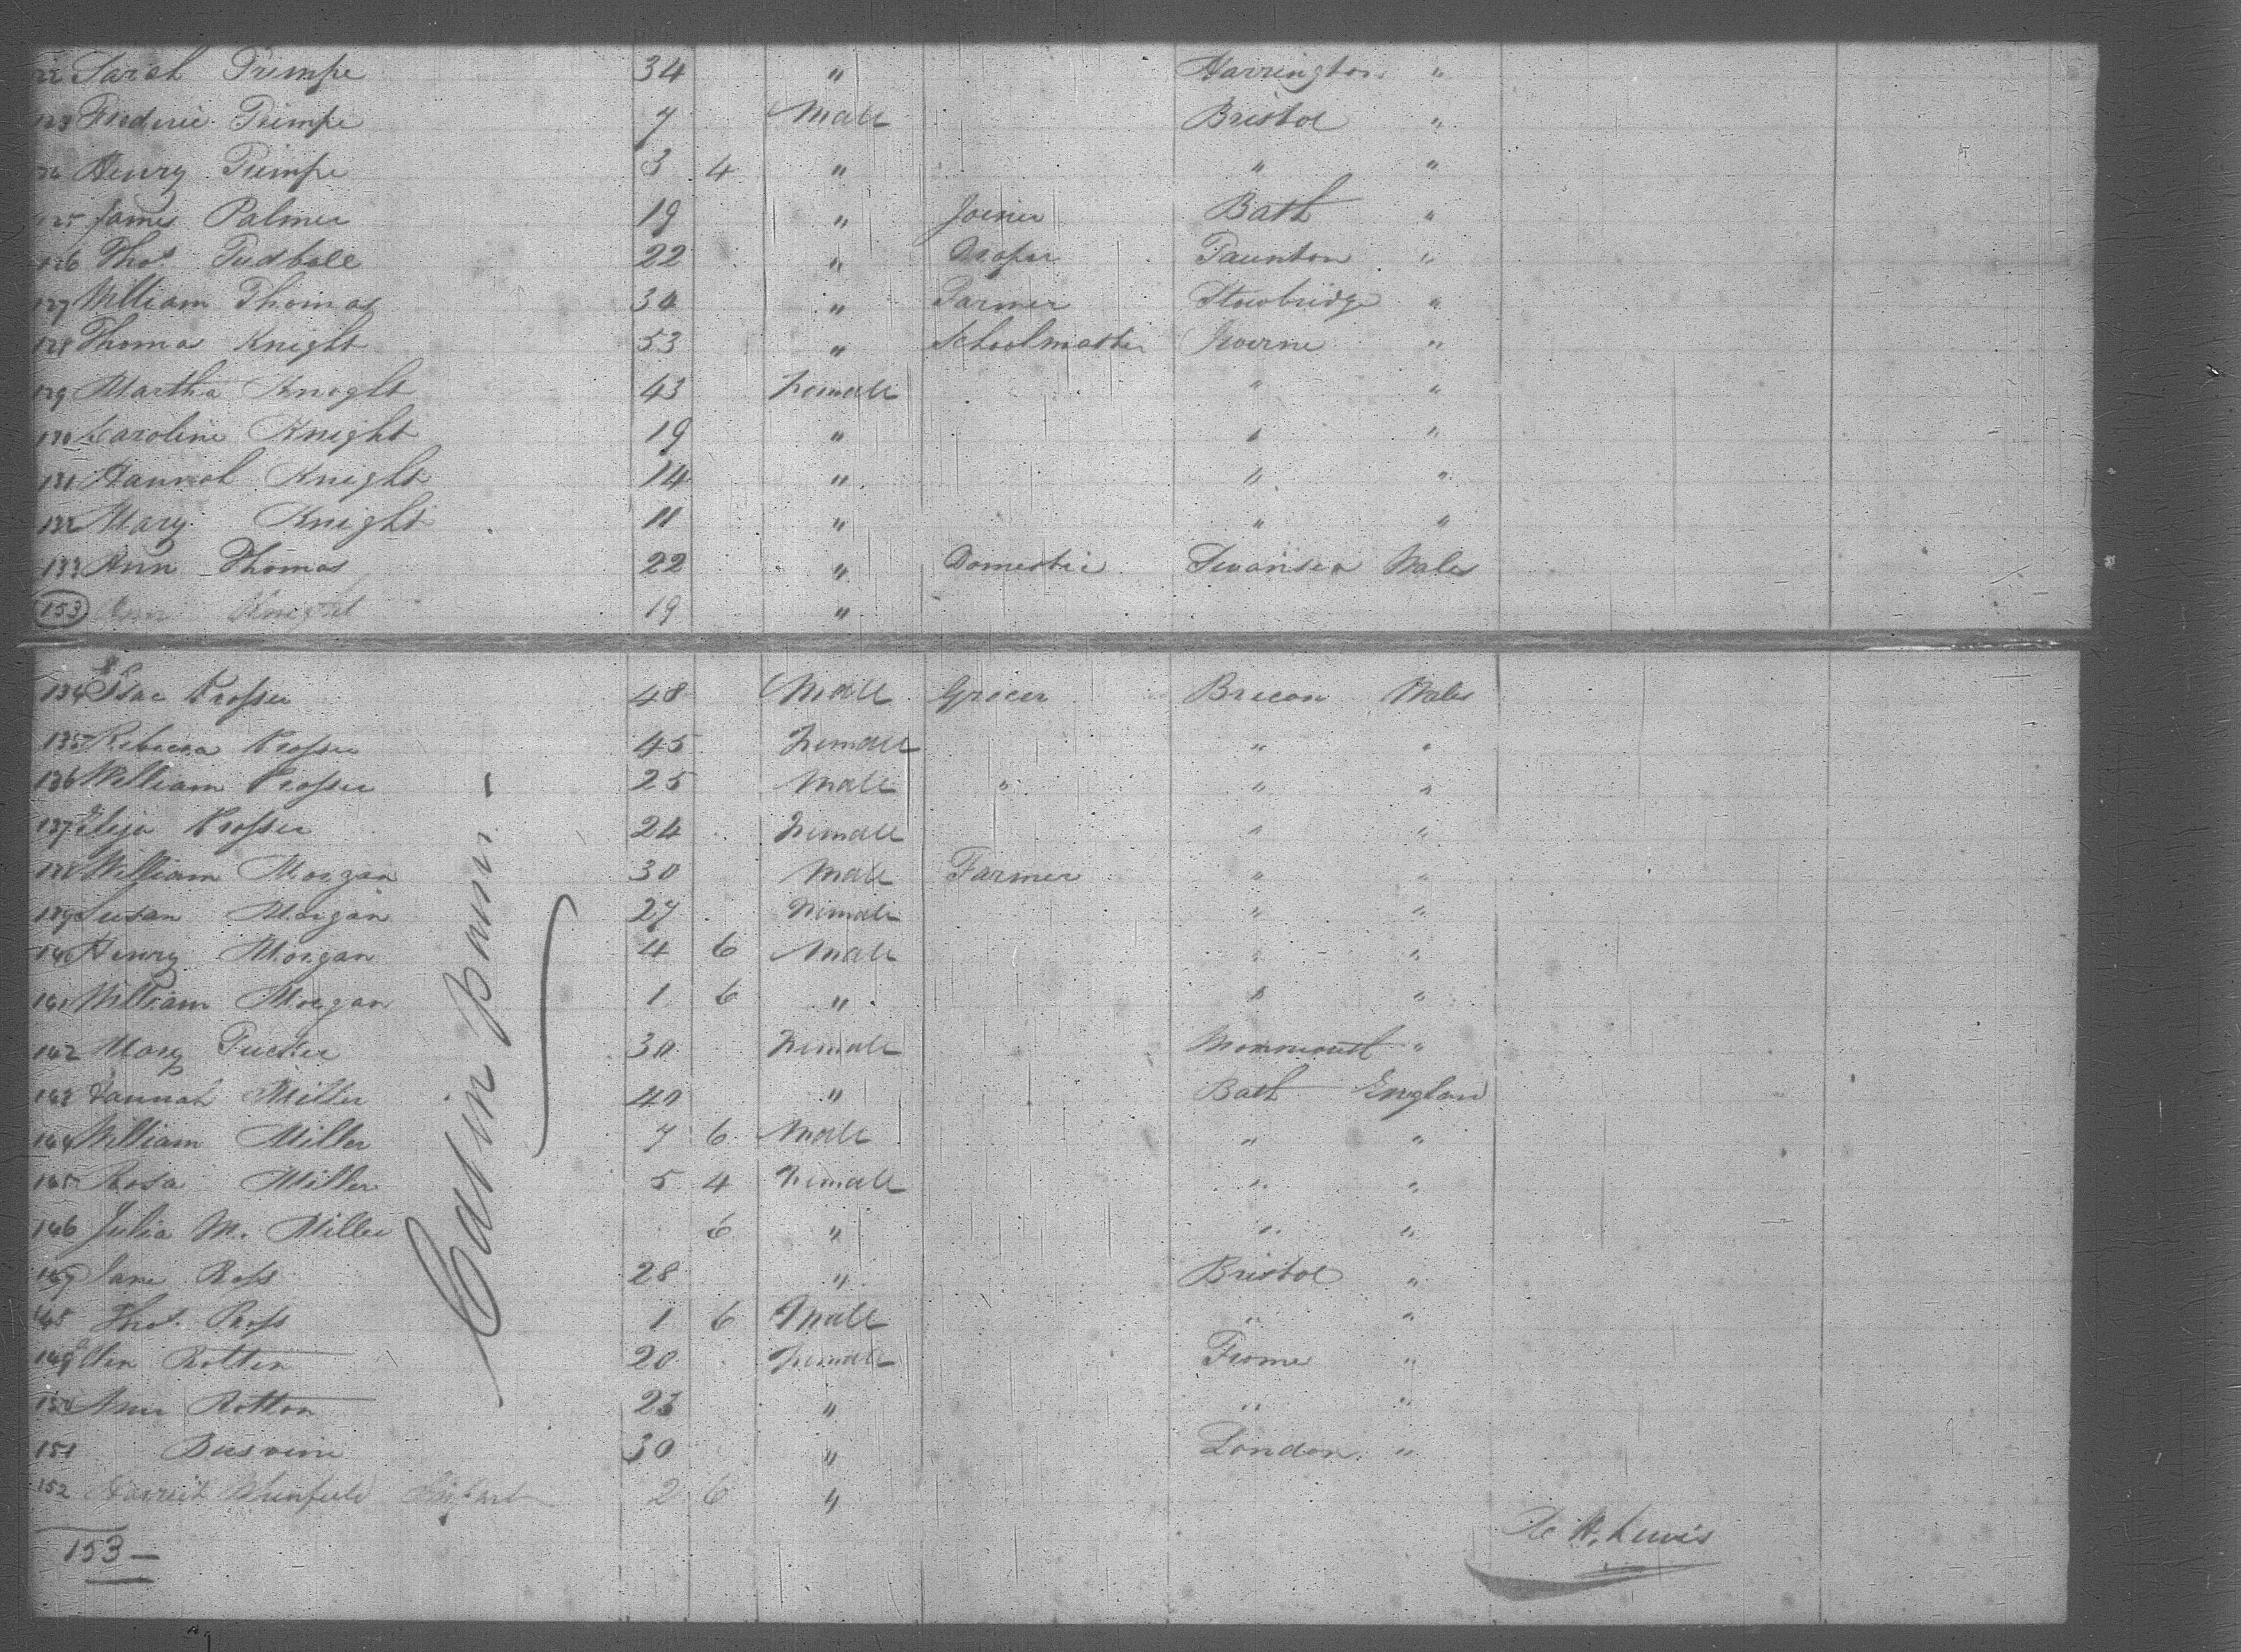 122 Sarah Trimpe 34 " Harrington "
123 Frederic Trimpe 7 Male Bristol "
124 Henry Trimpe 3 4 " " "
125 James Palmer 19 " Joiner Bath "
126 Thos. Tudball 22 " Draper Taunton "
127 William Thomas 30 " Farmer Stowbridge "
128 Thomas Knight 53 " Schoolmaster "
129 Martha Knight 43 Female " "
130 Caroline Knight 19 " " "
131 Hannah Knight 14 " " "
132 Mary Knight 11 " " "
133 Ann Thomas 22 " Domestic Swansea Wales
153 Ann Knight 19 "
134 Isac Prosser 48 Male Grocer Brecon Wales
135 Rebecca Prosser 45 Female " "
136 William Prosser 25 Male " " "
137 Prosser 24 Female " "
138 William Morgan 30 Male Farmer " "
139 Susan Morgan 27 Female " "
140 Henry Morgan 4 6 Male " "
141 William Morgan 1 6 " " "
142 Mary Tucker 30 Female Monmouth "
143 Hannah Miller 40 " Bath England
144 William Miller 7 6 Male " "
145 Rosa Miller 5 4 Female " "
146 Julia M. Miller 6 " " "
147 Jane Ross 28 " Bristol "
148 Thos. Ross 1 6 Male " "
149 Ellen Rotten 20 Female Frome "
150 Ann Rotton 23 " " "
151 Busvine 30 " London "
152 Harriet Infant 2 6 "
153
Cabin
H. Lewis